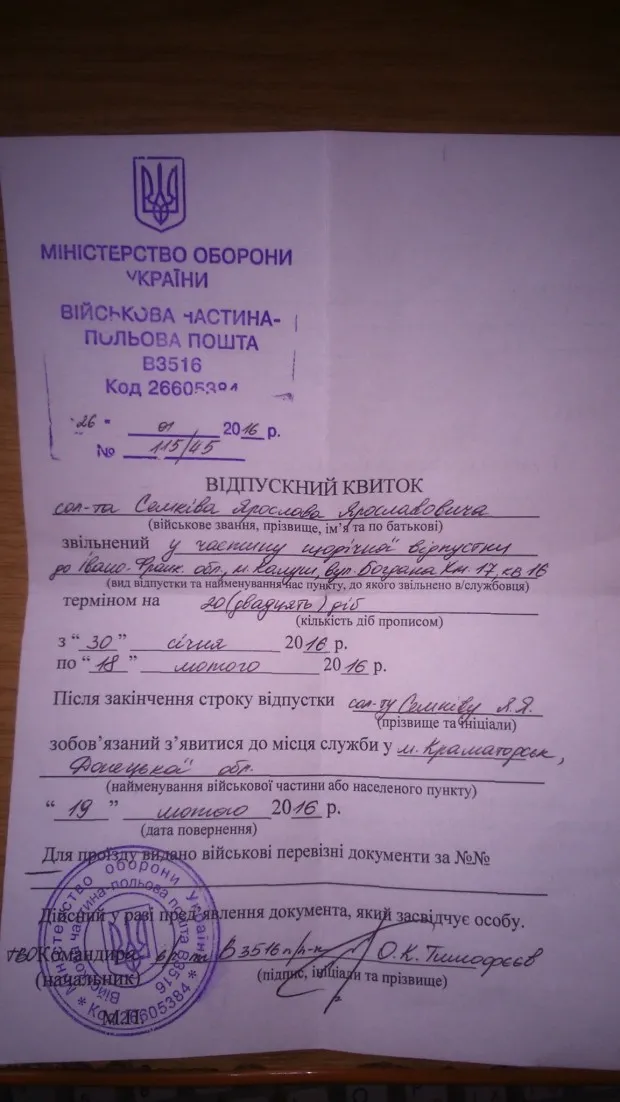 МІНІСТЕРСТВО ОБОРОНИ
УКРАЇНИ
ВІЙСЬКОВА ЧАСТИНА-
ПОЛЬОВА ПОШТА
В3516
Код 26605384
"26" 01 2016 р.
№ 115/45
ВІДПУСКНИЙ КВИТОК
сол-та Семківа Ярослава Ярославовича
(військове звання, прізвище, ім'я та по батькові)
звільнений у частину щорічної відпустки
до Івано-Франк. обл., м. Калуш, вул. Богдана Хм. 17, кв. 16
(вид відпустки та найменування нас пункту, до якого звільнено в/службовця)
терміном на 20 (двадцять) діб
(кількість діб прописом)
з "30" січня 2016 р.
по "18" лютого 2016 р.
Після закінчення строку відпустки сол-ту Семківу Я.Я.
(прізвище та ініціали)
зобов'язаний з'явитися до місця служби у м. Краматорськ,
Донецької обл.
(найменування військової частини або населеного пункту)
"19" лютого 2016 р.
(дата повернення)
Для проїзду видано військові перевізні документи за №№
Дійсний у разі пред'явлення документа, який засвідчує особу.
ТВО Командира В3516 п/п-к О.К. Тимофєєв
(начальник) (підпис, ініціали та прізвище)
М.П.
Міністерство оборони України * Код 26605384 *
Військова частина-польова пошта В3516